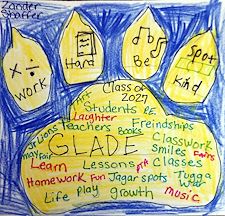 Zander
Shaffer
work
Hard
Be
Spot
Kind
Class of
2027
Art
Students P.E.
Laughter
Teachers Books Freindships
Jr Lions
Classwork
GLADE
Smiles
May Fair
Learn Lessons Classes
Homework Fun Jagar spots Tugga
War
Life Play growth music